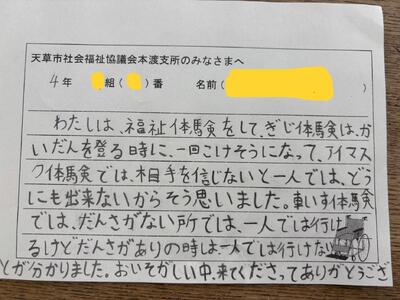 天草市社会福祉協議会本渡支所のみなさまへ
4年 組( )番 名前( )
わたしは、福祉体験をして、ぎじ体験は、か
いだんを登る時に、一回こけそうになって、アイマス
ク体験では、相手を信じないと一人では、どう
にも出来ないからそう思いました。車いす体験
では、だんさがない所では、一人では行け
るけどだんさがありの時は一人では行けない
とが分かりました。おいそがしい中、来てくださってありがとうござ